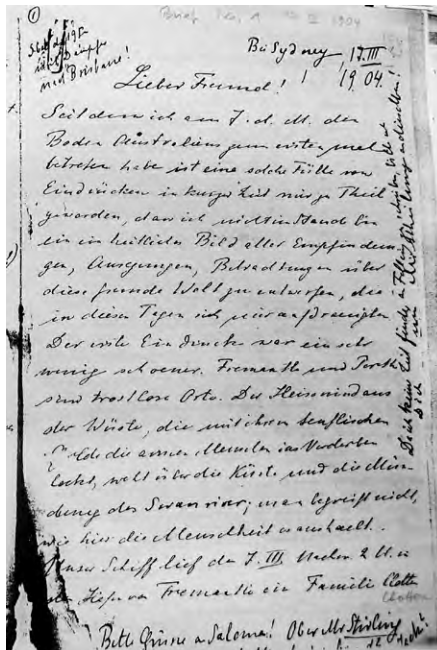 ①
Brief No. 1 III 1904
mit Dampfer
nach Brisbane!
Bei Sydney, 17. III
19 04.
Lieber Freund!
Seitdem ich am 7. d. M. den
Boden Australiens zum ersten mal
betreten habe ist eine solche Fülle von
Eindrücken in kurzer Zeit mir zu Theil
geworden, dass ich nicht im Stande bin
ein einheitliches Bild aller Empfindun
gen, Anregungen, Betrachtungen über
diese fremde Welt zu entwerfen, die
in diesen Tagen sich mir aufdraengten.
Der erste Eindruck war ein sehr
wenig schoener. Fremantle und Perth
sind trostlose Orte. Der Heisswind aus
der Wüste, die mit ihren teuflischen
die armen Menschen ins Verderben
lockt, weht über die Küste und die Mün
dung des Swanriver; man begreift nicht,
wie hier die Menschheit es aushaelt.
Unser Schiff lief den 7. III. Nachm. 2 U. in
den Hafen von Fremantle ein Familie Clotten
Clotten
Bitte Grüsse an Salome! Ober Mr Stirling
Da ich keine Zeit finde, an schreiben, bitte
Dich um Mittheilung an dieselben!